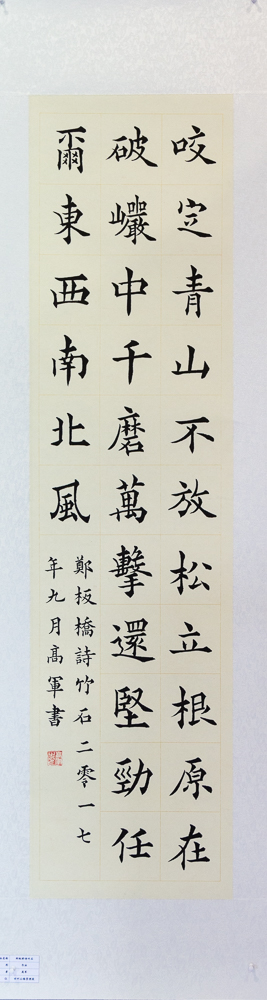 咬定青山不放松立根原在
破巖中千磨萬擊還堅勁任
爾東西南北風
鄭板橋詩竹石二零一七
年九月高軍書